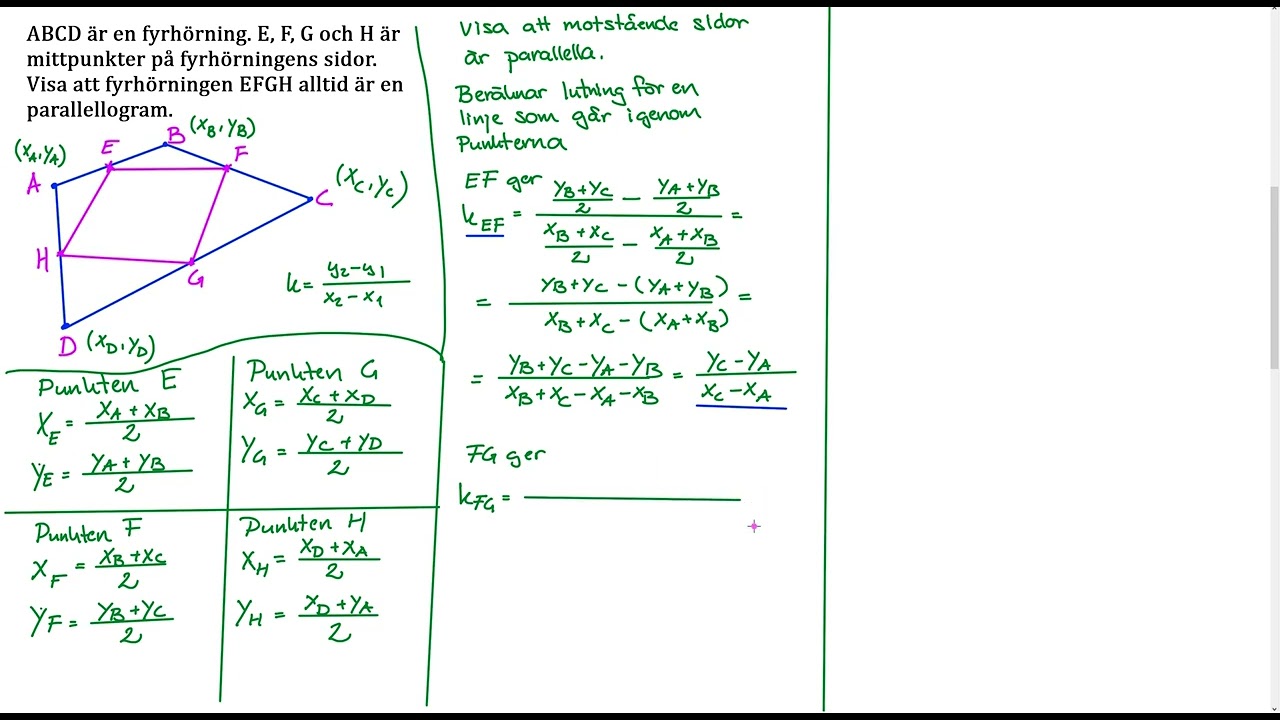 ABCD är en fyrhörning. E, F, G och H är
mittpunkter på fyrhörningens sidor.
Visa att fyrhörningen EFGH alltid är en
parallellogram.
(x_A, y_A)
A
E
B (x_B, y_B)
F
C (x_C, y_C)
H
G
D (x_D, y_D)
k = (y_2 - y_1)/(x_2 - x_1)
Punkten E
x_E = (x_A + x_B)/2
y_E = (y_A + y_B)/2
Punkten G
x_G = (x_C + x_D)/2
y_G = (y_C + y_D)/2
Punkten F
x_F = (x_B + x_C)/2
y_F = (y_B + y_C)/2
Punkten H
x_H = (x_D + x_A)/2
y_H = (x_D + y_A)/2
Visa att motstående sidor
är parallella.
Beräknar lutning för en
linje som går igenom
Punkterna
EF ger
k_EF = ((y_B + y_C)/2 - (y_A + y_B)/2)/((x_B + x_C)/2 - (x_A + x_B)/2) =
= (y_B + y_C - (y_A + y_B))/(x_B + x_C - (x_A + x_B)) =
= (y_B + y_C - y_A - y_B)/(x_B + x_C - x_A - x_B) = (y_C - y_A)/(x_C - x_A)
FG ger
k_FG =